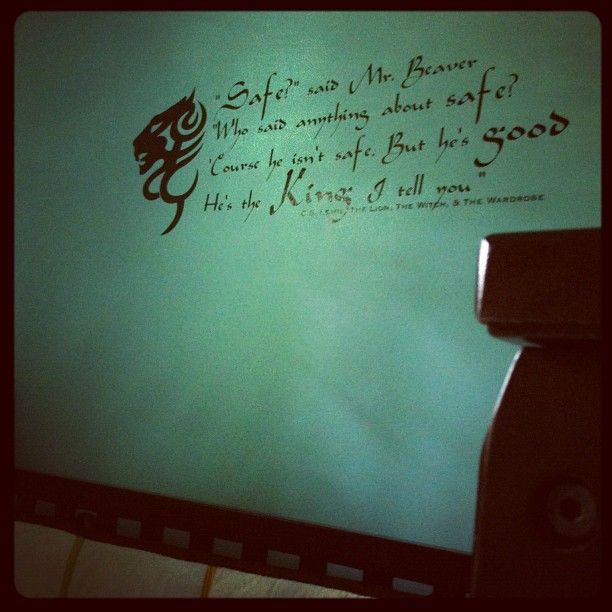 "Safe?" said Mr. Beaver
"Who said anything about safe?
'Course he isn't safe. But he's good
He's the King I tell you"
C.S. Lewis, The Lion, The Witch, & The Wardrobe